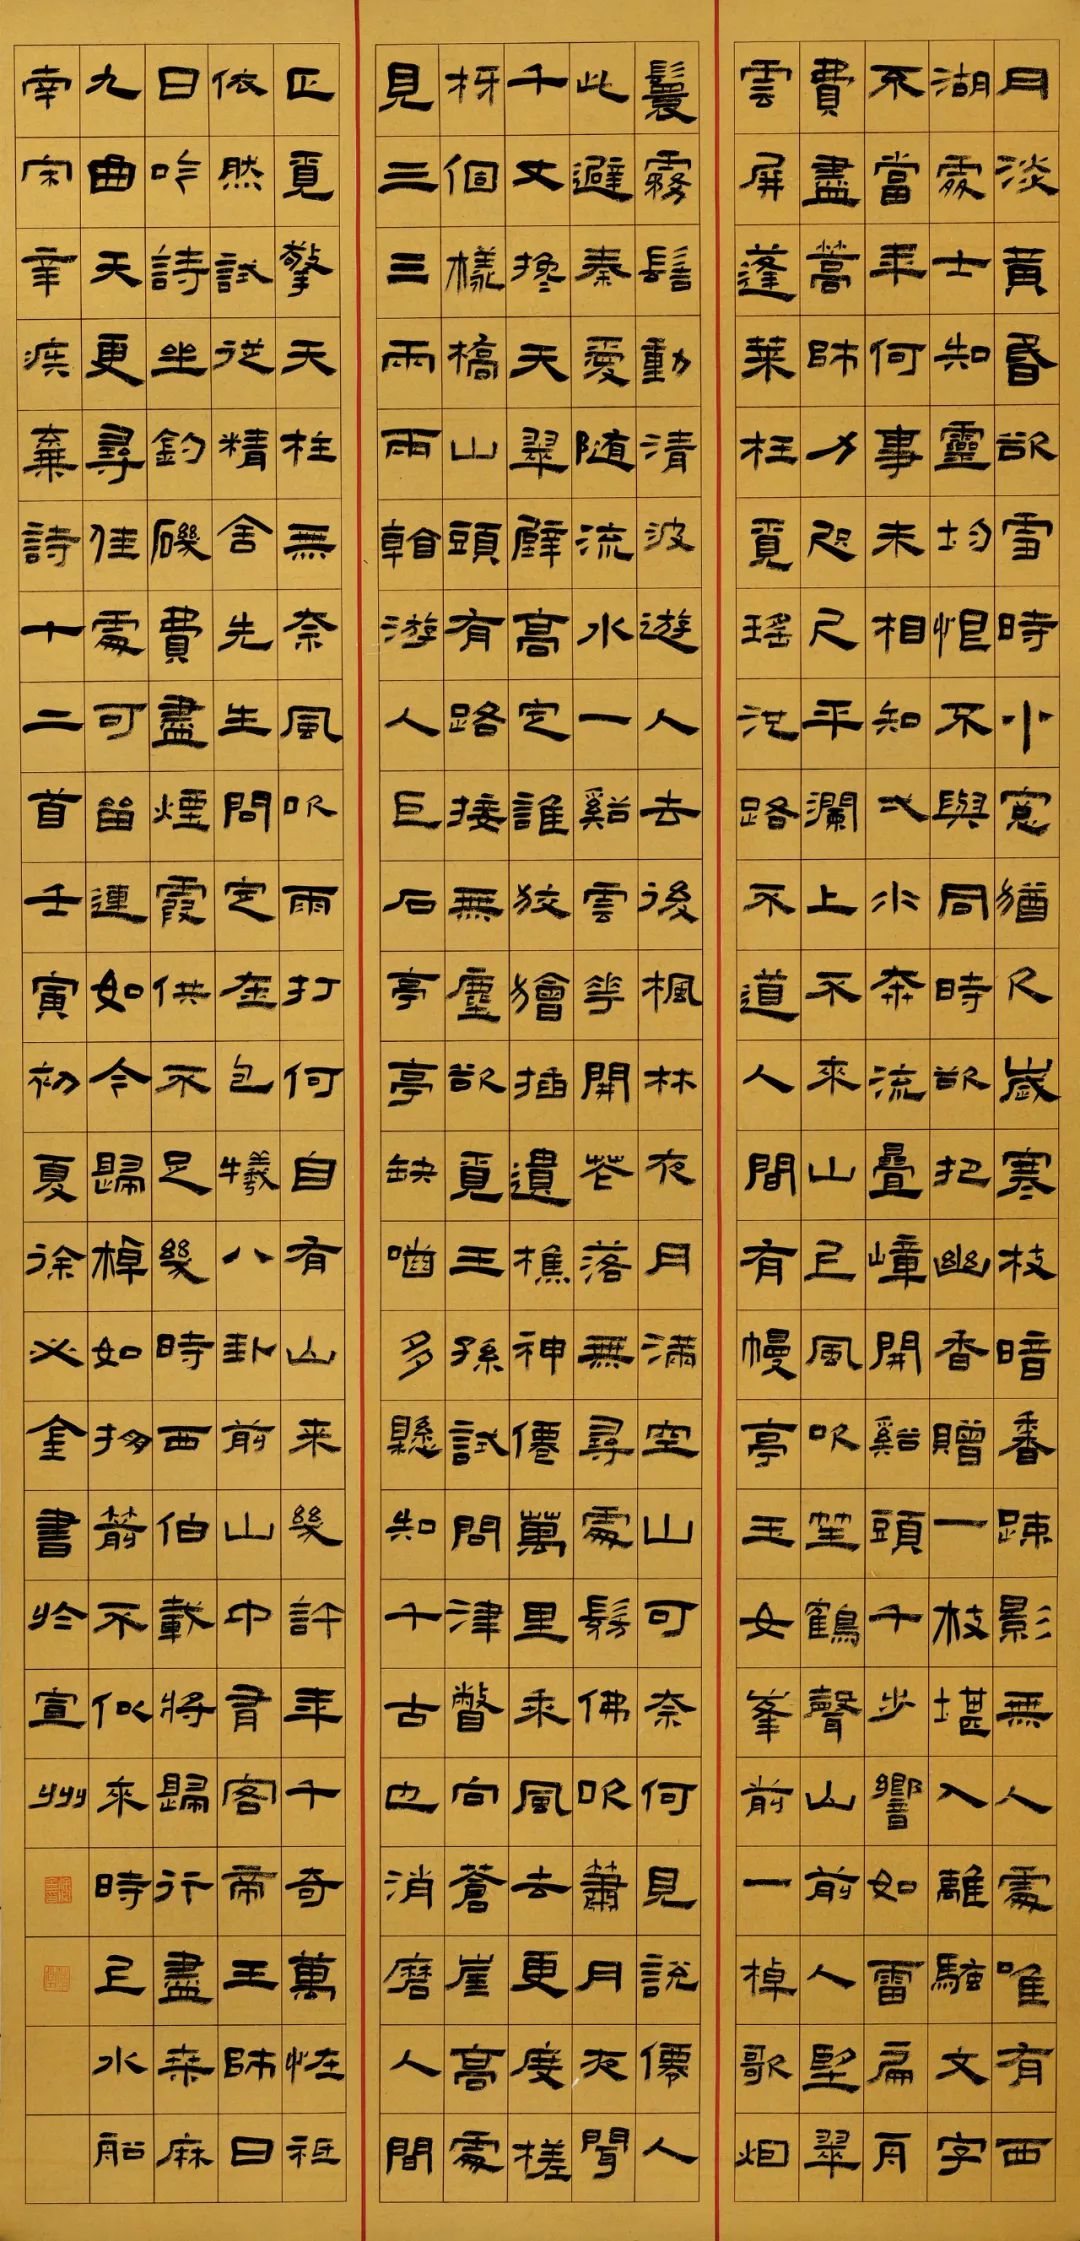 月淡黄昏欲雪時小窗猶欠歲寒枝暗香疎影無人處唯有西
湖處士知靈均恨不與同時欲把幽香贈一枝堪入離騷文字
不當年何事未相知一水奔流疊嶂開谿頭千步響如雷扁舟
費盡篙師力咫尺平瀾上不來山上風吹笙鶴聲山前人望翠
雲屏蓬萊枉覓瑤池路不道人間有幔亭玉女峯前一棹歌烟
鬟霧髻動清波遊人去後楓林夜月滿空山可奈何見說僊人
此避秦愛隨流水一谿雲花開花落無尋處髣佛吹簫月夜聞
千丈攙天翠壁高定誰狡獪插遺樵神僊萬里乘風去更度槎
枒個樣橋山頭有路接無塵欲覓王孫試問津瞥向蒼崖高處
見三三兩兩看游人巨石亭亭缺嚙多懸知千古也消磨人間
正覓擎天柱無奈風吹雨打何自有山来幾許年千奇萬怪祗
依然試從精舍先生問定在包犧八卦前山中有客帝王師日
日吟詩坐釣磯費盡煙霞供不足幾時西伯載將歸行盡桑麻
九曲天更尋佳處可留連如今歸棹如掤箭不似來時上水船
南宋辛疾棄詩十二首壬寅初夏徐必金書於宣州